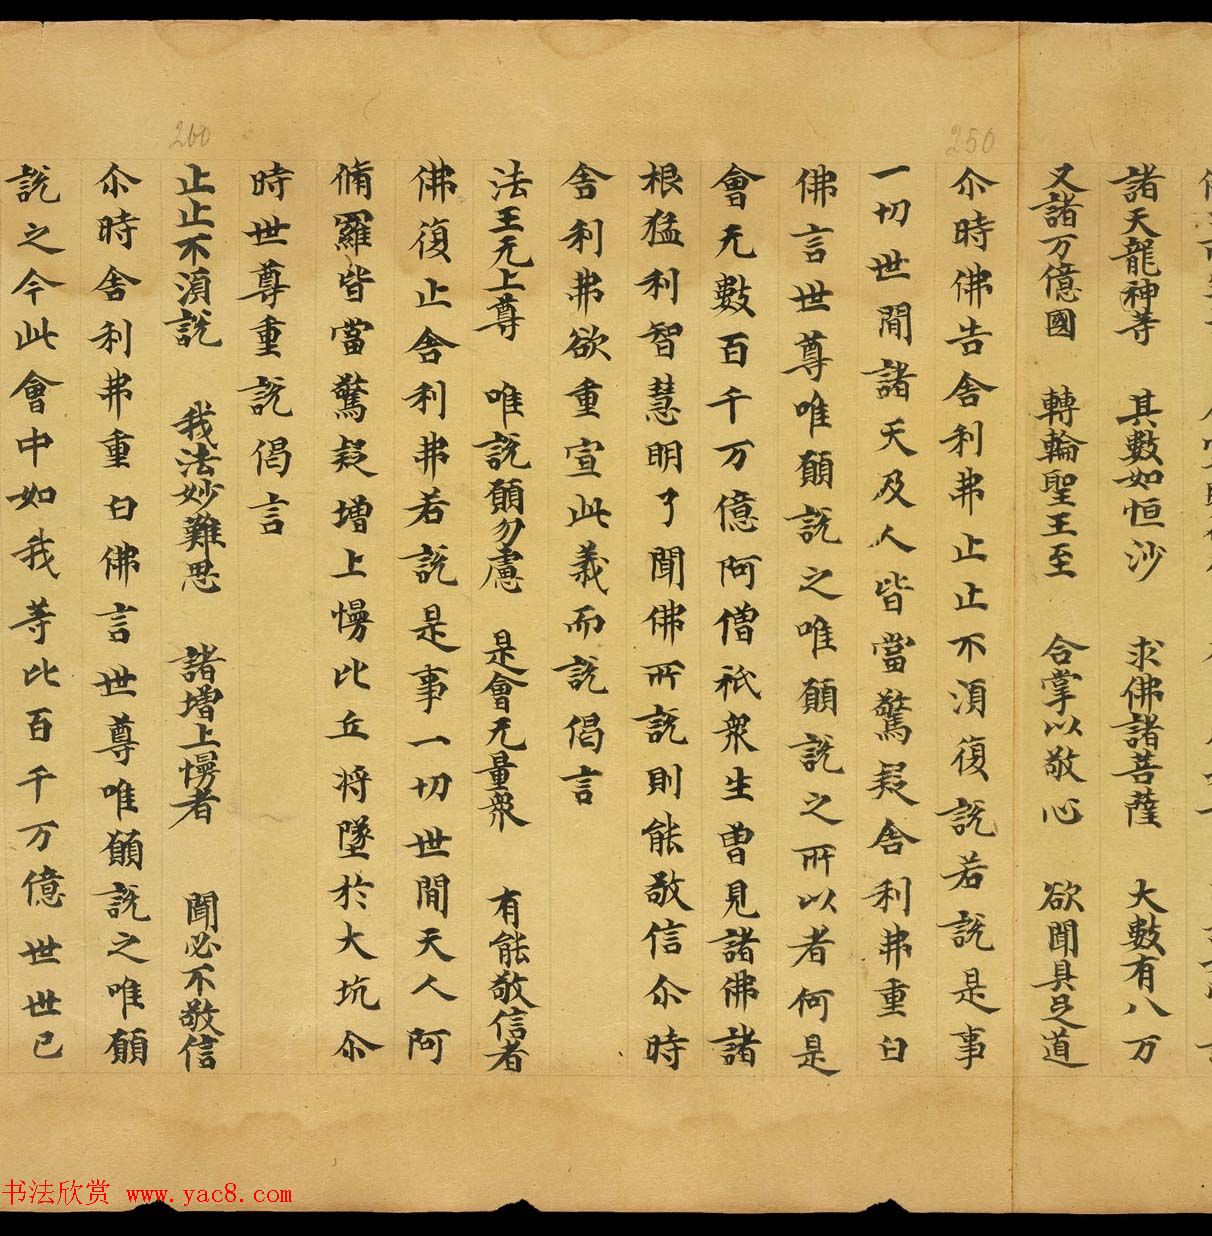 諸天龍神等 其數如恒沙 求佛諸菩薩 大數有八万
又諸万億國 轉輪聖王至 合掌以敬心 欲聞具足道
尒時佛告舍利弗止止不湏復說若說是事
一切世間諸天及人皆當驚疑舍利弗重白
佛言世尊唯願說之唯願說之所以者何是
會无數百千万億阿僧祇衆生曾見諸佛諸
根猛利智慧明了聞佛所說則能敬信尒時
舍利弗欲重宣此義而說偈言
法王无上尊 唯說願勿慮 是會无量衆 有能敬信者
佛復止舍利弗若說是事一切世間天人阿
脩羅皆當驚疑增上慢比丘將墜於大坑尒
時世尊重說偈言
止止不湏說 我法妙難思 諸增上慢者 聞必不敬信
尒時舍利弗重白佛言世尊唯願說之唯願
說之今此會中如我等比百千万億世世已
250
260
书法欣赏 www.yac8.com